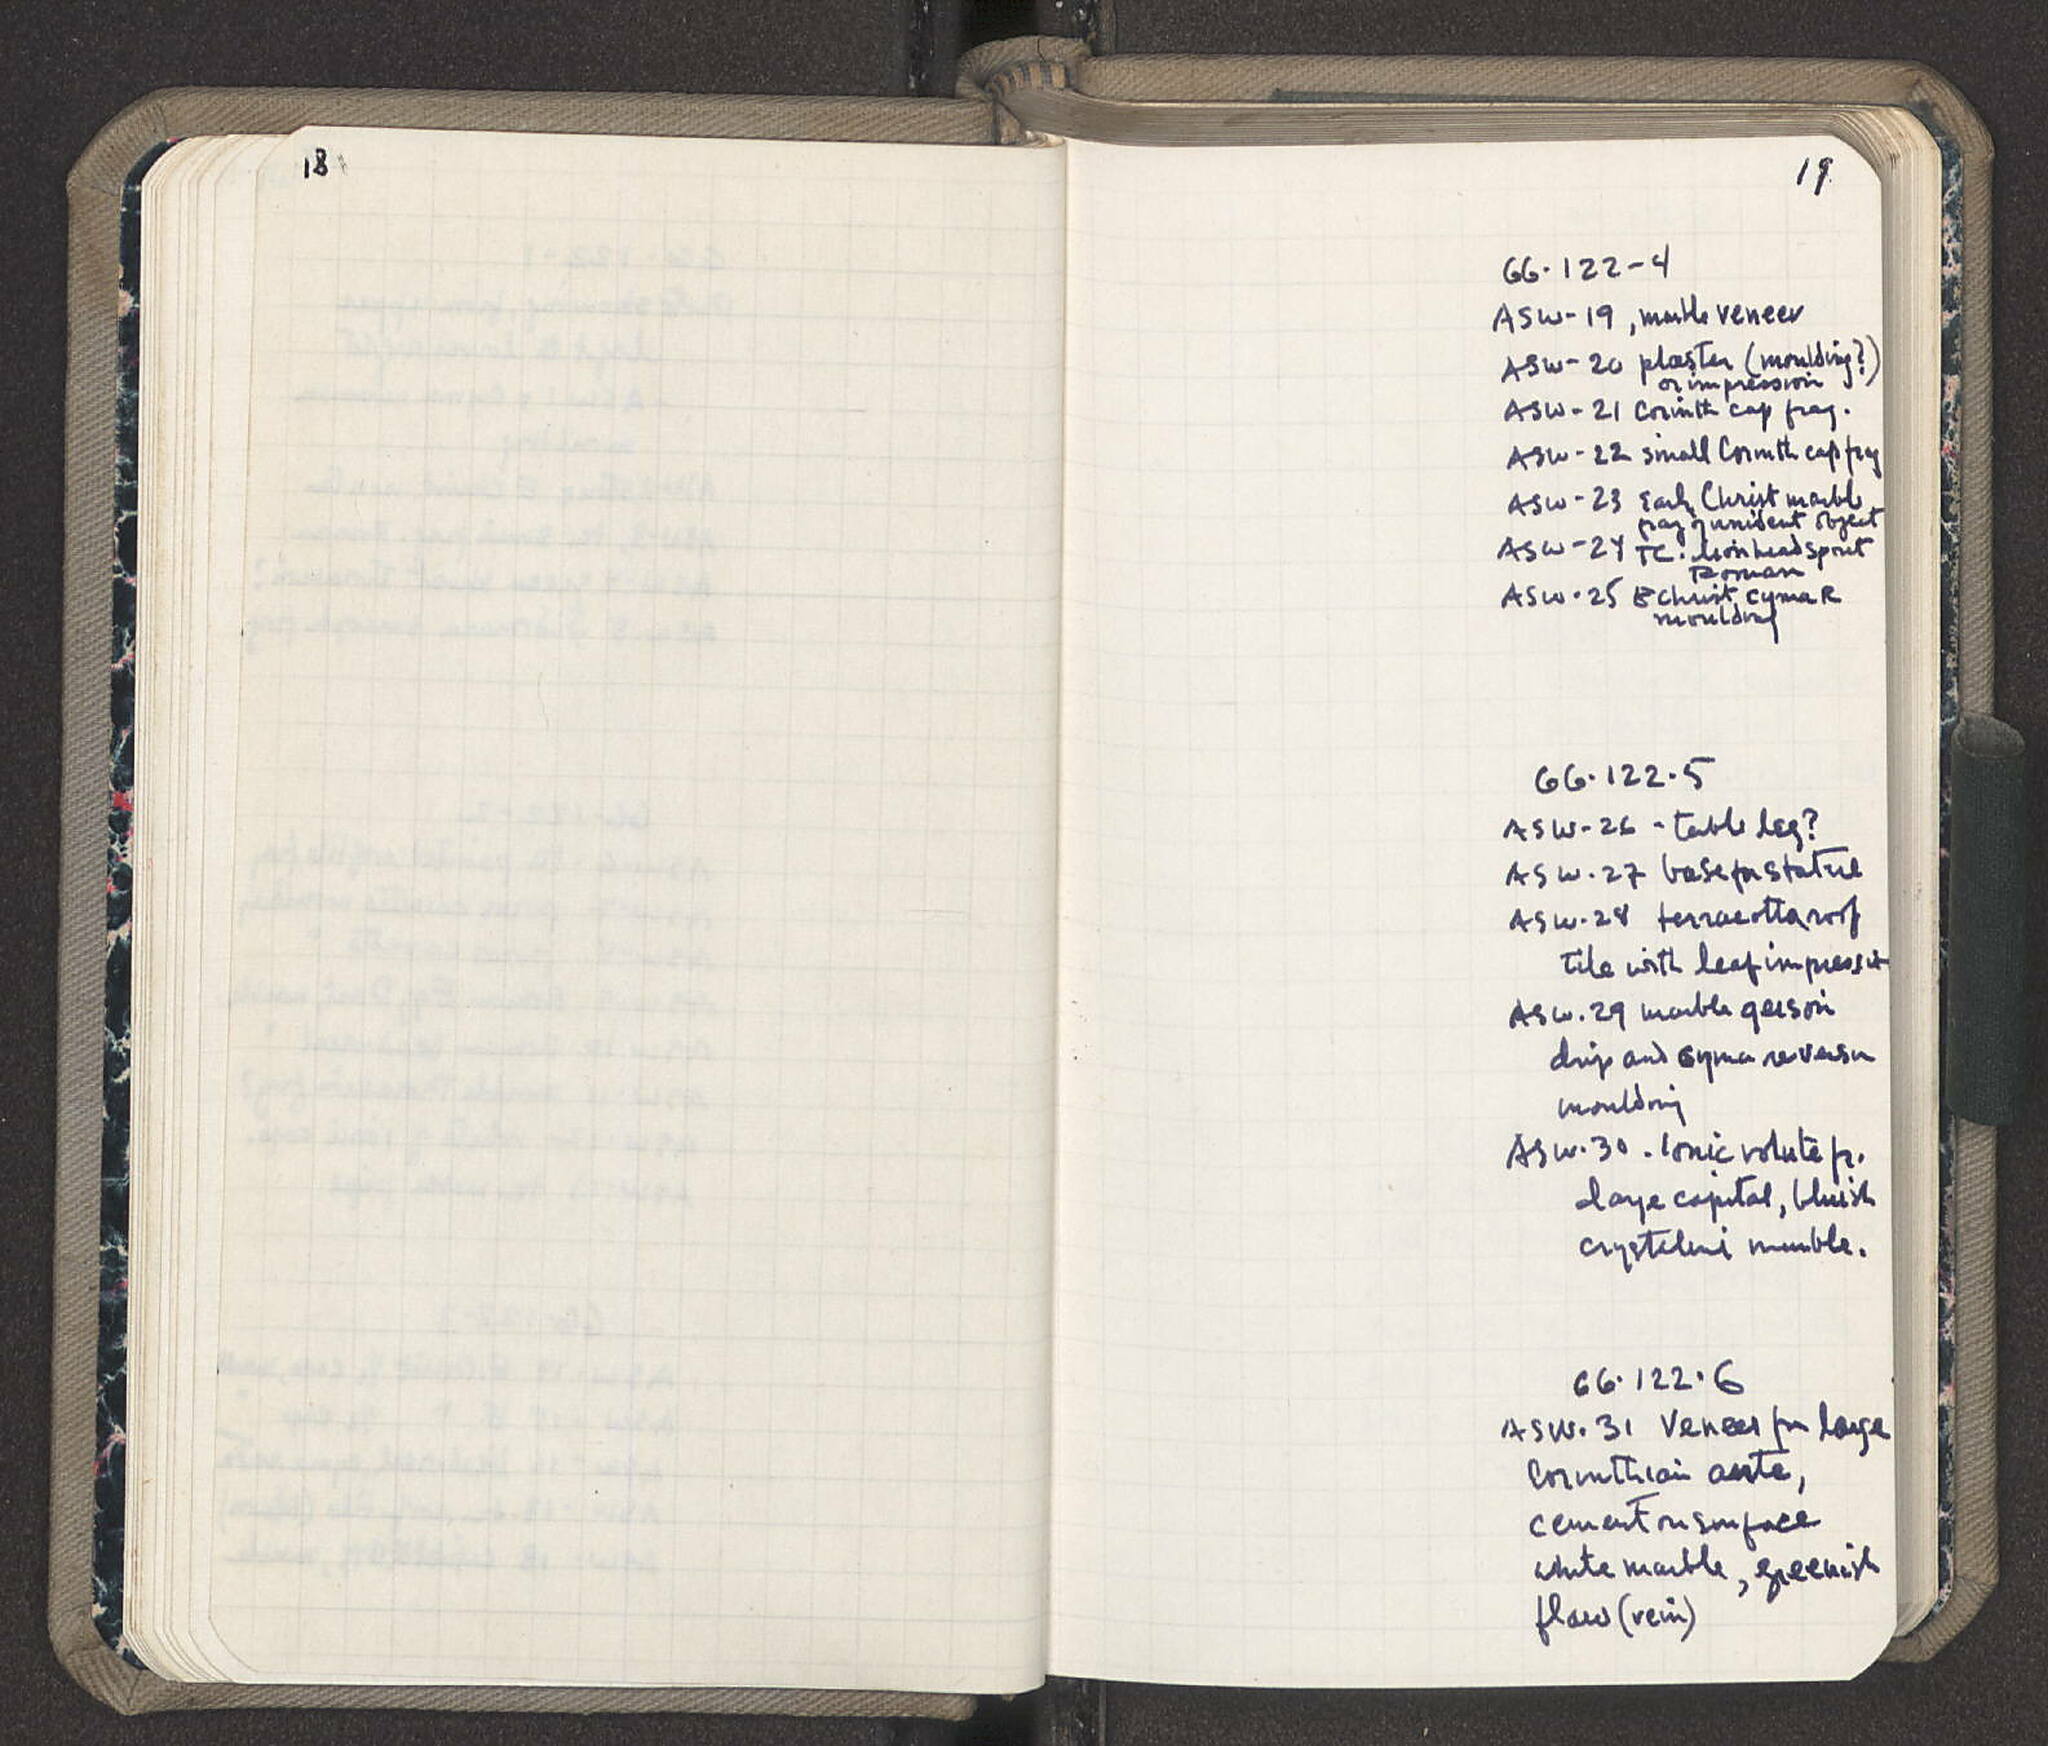 18
19
66.122-4
ASW-19, marble veneer
ASW-20 plaster (moulding?)
or impression
ASW-21 Corinth cap frag.
ASW-22 small Corinth cap frag
ASW-23 Early Christ marble
frag of unident object
ASW-24 TC. lionhead spout
Roman
ASW.25 E Christ cyma R
moulding
66.122.5
ASW-26 - table leg?
ASW.27 base for statue
ASW.28 terracotta roof
tile with leaf impress
ASW.29 marble geison
drip and cyma reversa
moulding
ASW.30. Ionic volute fr.
large capital, bluish
crystaline marble.
66.122.6
ASW.31 Veneer for large
Corinthian
cement on surface
white marble, greenish
flaw (vein)